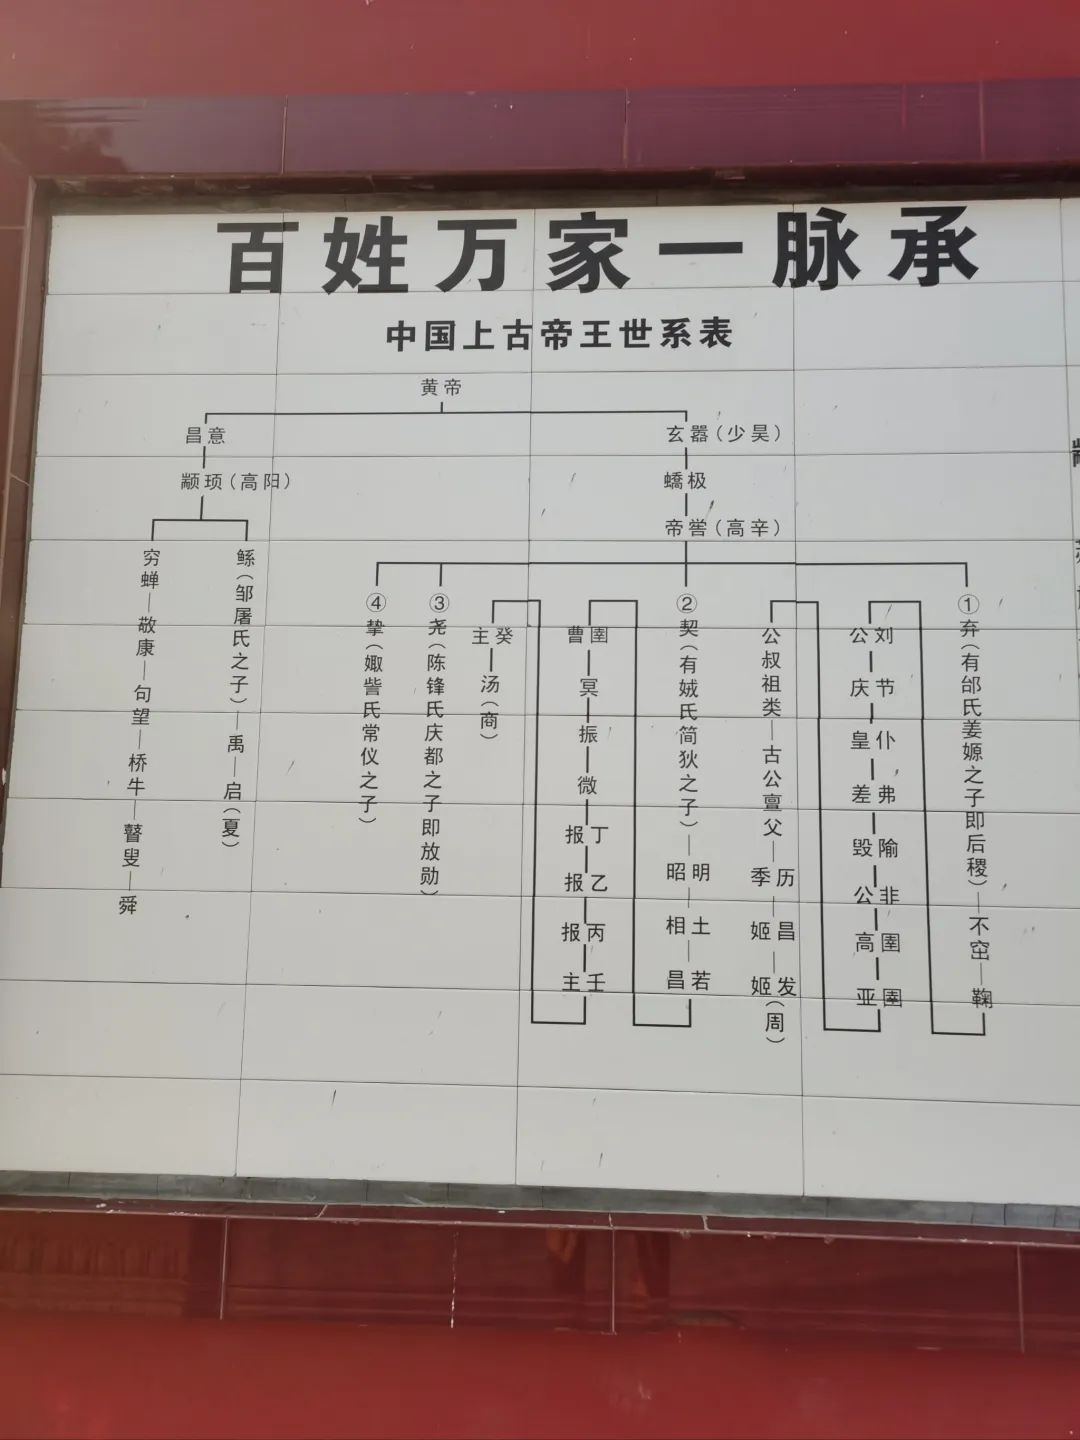 百姓万家一脉承
中国上古帝王世系表
黄帝
昌意
玄嚣(少昊)
颛顼(高阳)
蟜极
帝喾(高辛)
穷蝉—敬康—句望—桥牛—瞽叟—舜
鲧(邹屠氏之子)—禹—启(夏)
④挚(娵訾氏常仪之子)
③尧(陈锋氏庆都之子即放勋)
②契(有娀氏简狄之子)—昭明—相土—昌若
曹圉—冥—振—微—报丁—报乙—报丙—主壬
主癸—汤(商)
①弃(有邰氏姜嫄之子即后稷)—不窋—鞠
公刘—庆节—皇仆—差弗—毁隃—公非—高圉—亚圉
公叔祖类—古公亶父—季历—姬昌—姬发(周)